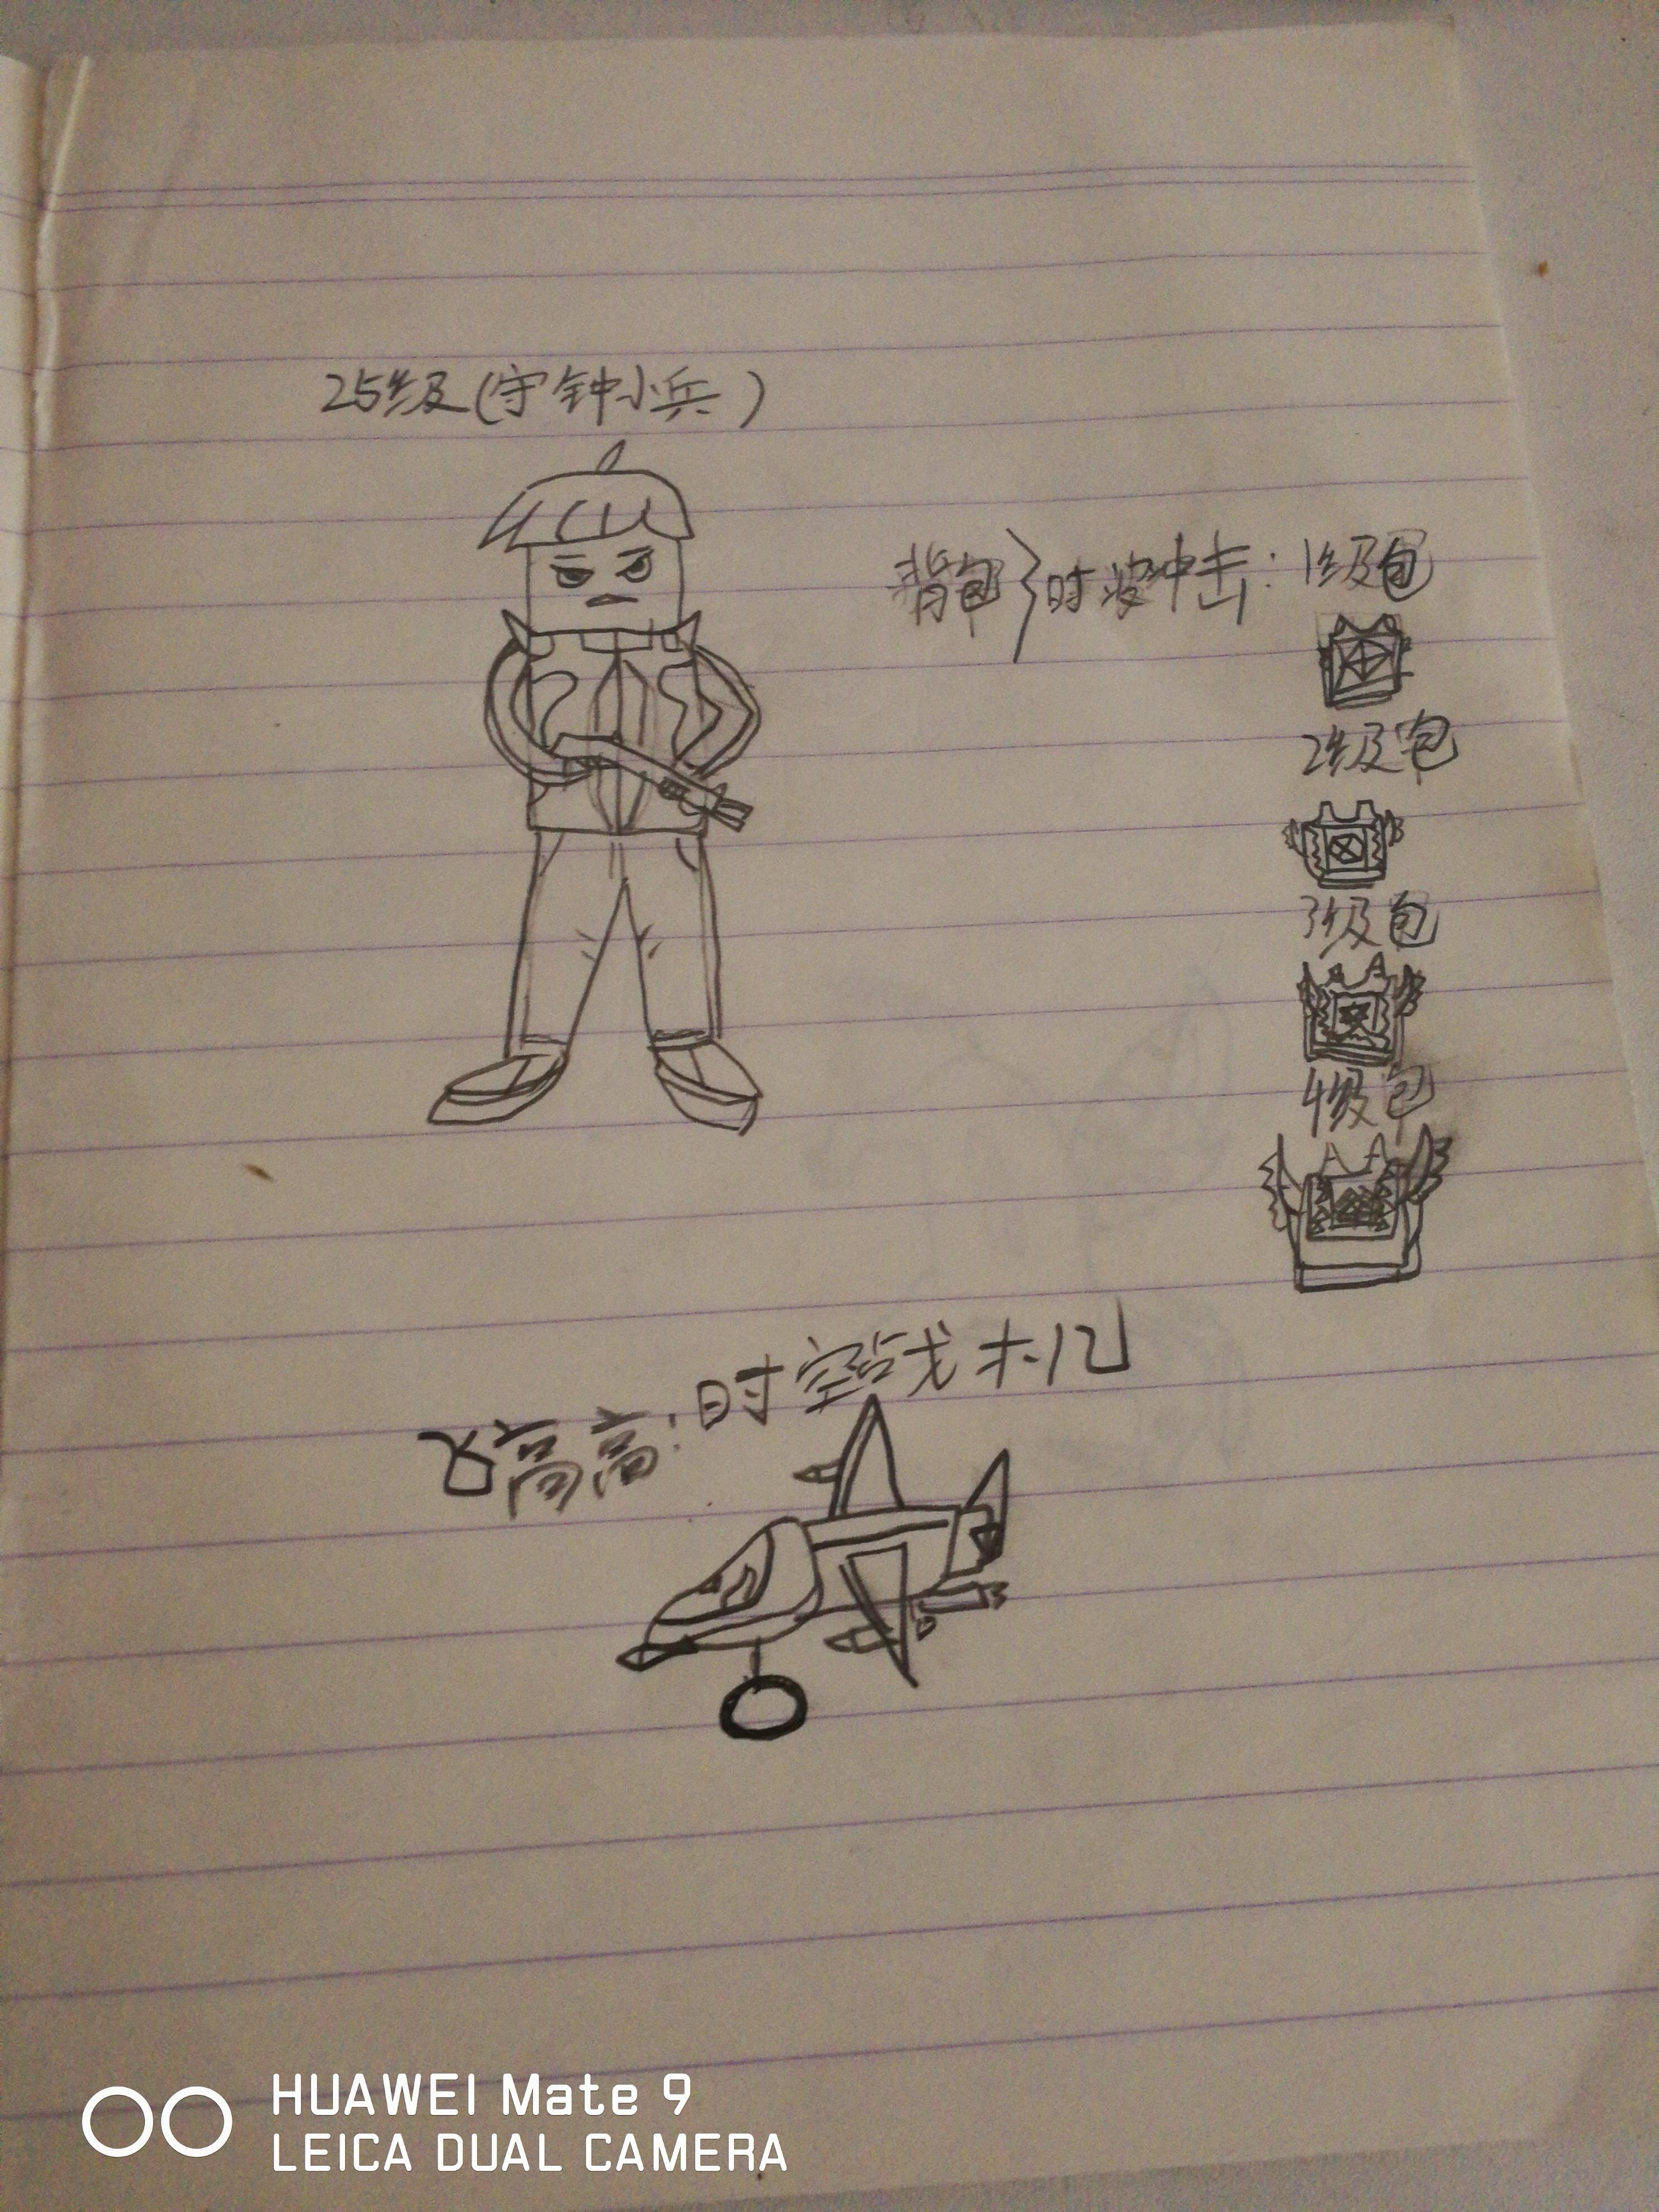 25级(守钟小兵)
背包}时波冲击:1级包
2级包
3级包
4级包
飞高高:时空战机
HUAWEI Mate 9
LEICA DUAL CAMERA